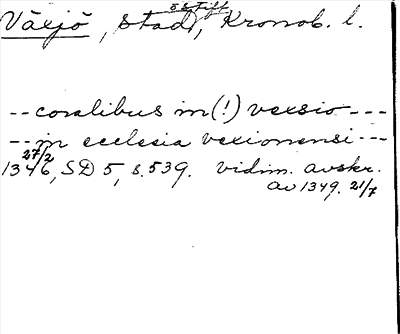 Växjö, stad, Kronob. l.
o stift
-- coralibus in (!) vexsio ---
-- in ecclesia vexionensi ---
27/2
1346, SD 5, s. 539. vidim. avskr.
av 1349. 21/7